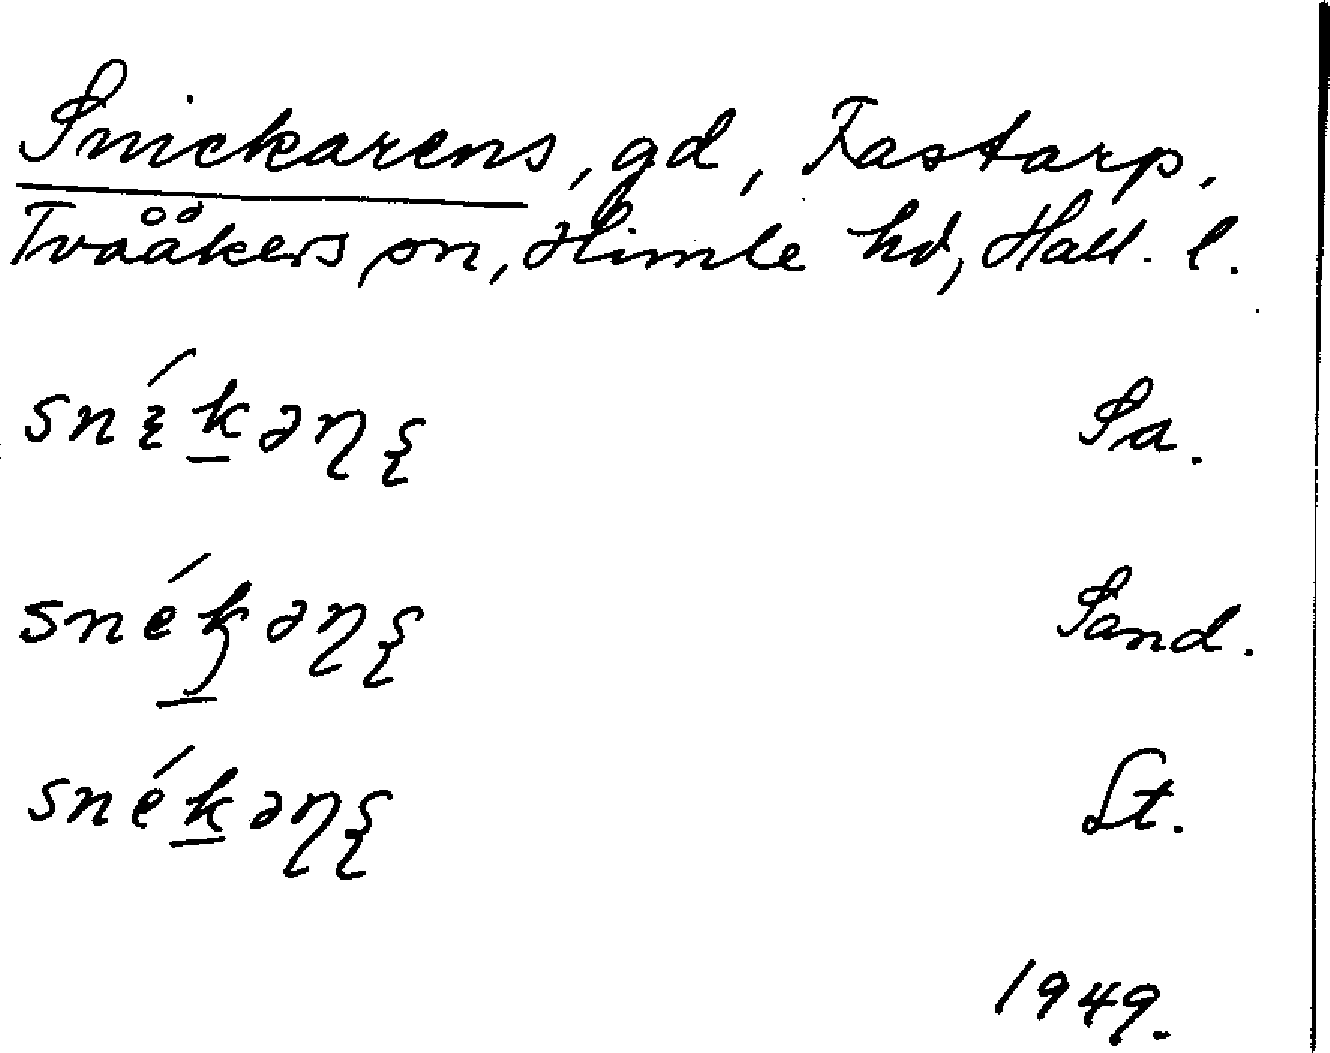 Snickarens, gd, Fastarp,
Tvååkers sn, Himle hd, Hall. l.
snɛ́k̲əɳʂ Sa.
snék̲əɳʂ Sand.
snék̲əɳʂ St.
1949.